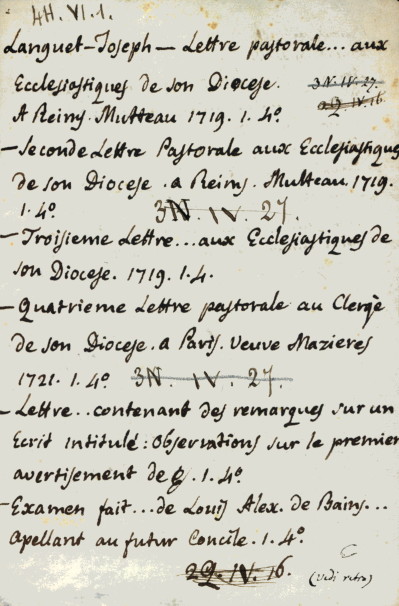 4H.VI.1.
Languet-Joseph — Lettre pastorale... aux
Ecclesiastiques de son Diocese. 3N.IV.27.
A Reins. Multeau 1719. 1.4º. 2Q.IV.16.
— Seconde Lettre Pastorale aux Ecclesiastiques
de son Diocese. a Reins. Multeau. 1719.
1.4º. 3N.IV.27.
— Troisieme Lettre... aux Ecclesiastiques de
son Diocese. 1719. 1.4.
— Quatrieme Lettre pastorale au Clergè
de son Diocese. a Paris. Veuve Mazieres
1721. 1.4º 3N. IV. 27.
— Lettre.. contenant des remarques sur un
Ecrit intitulé: Observations sur le premier
avertisement de 1.4º.
— Examen fait... de Louis Alex. de Bains...
Apellant au futur Concile. 1.4º.
2Q.IV.16. (Vedi retro)